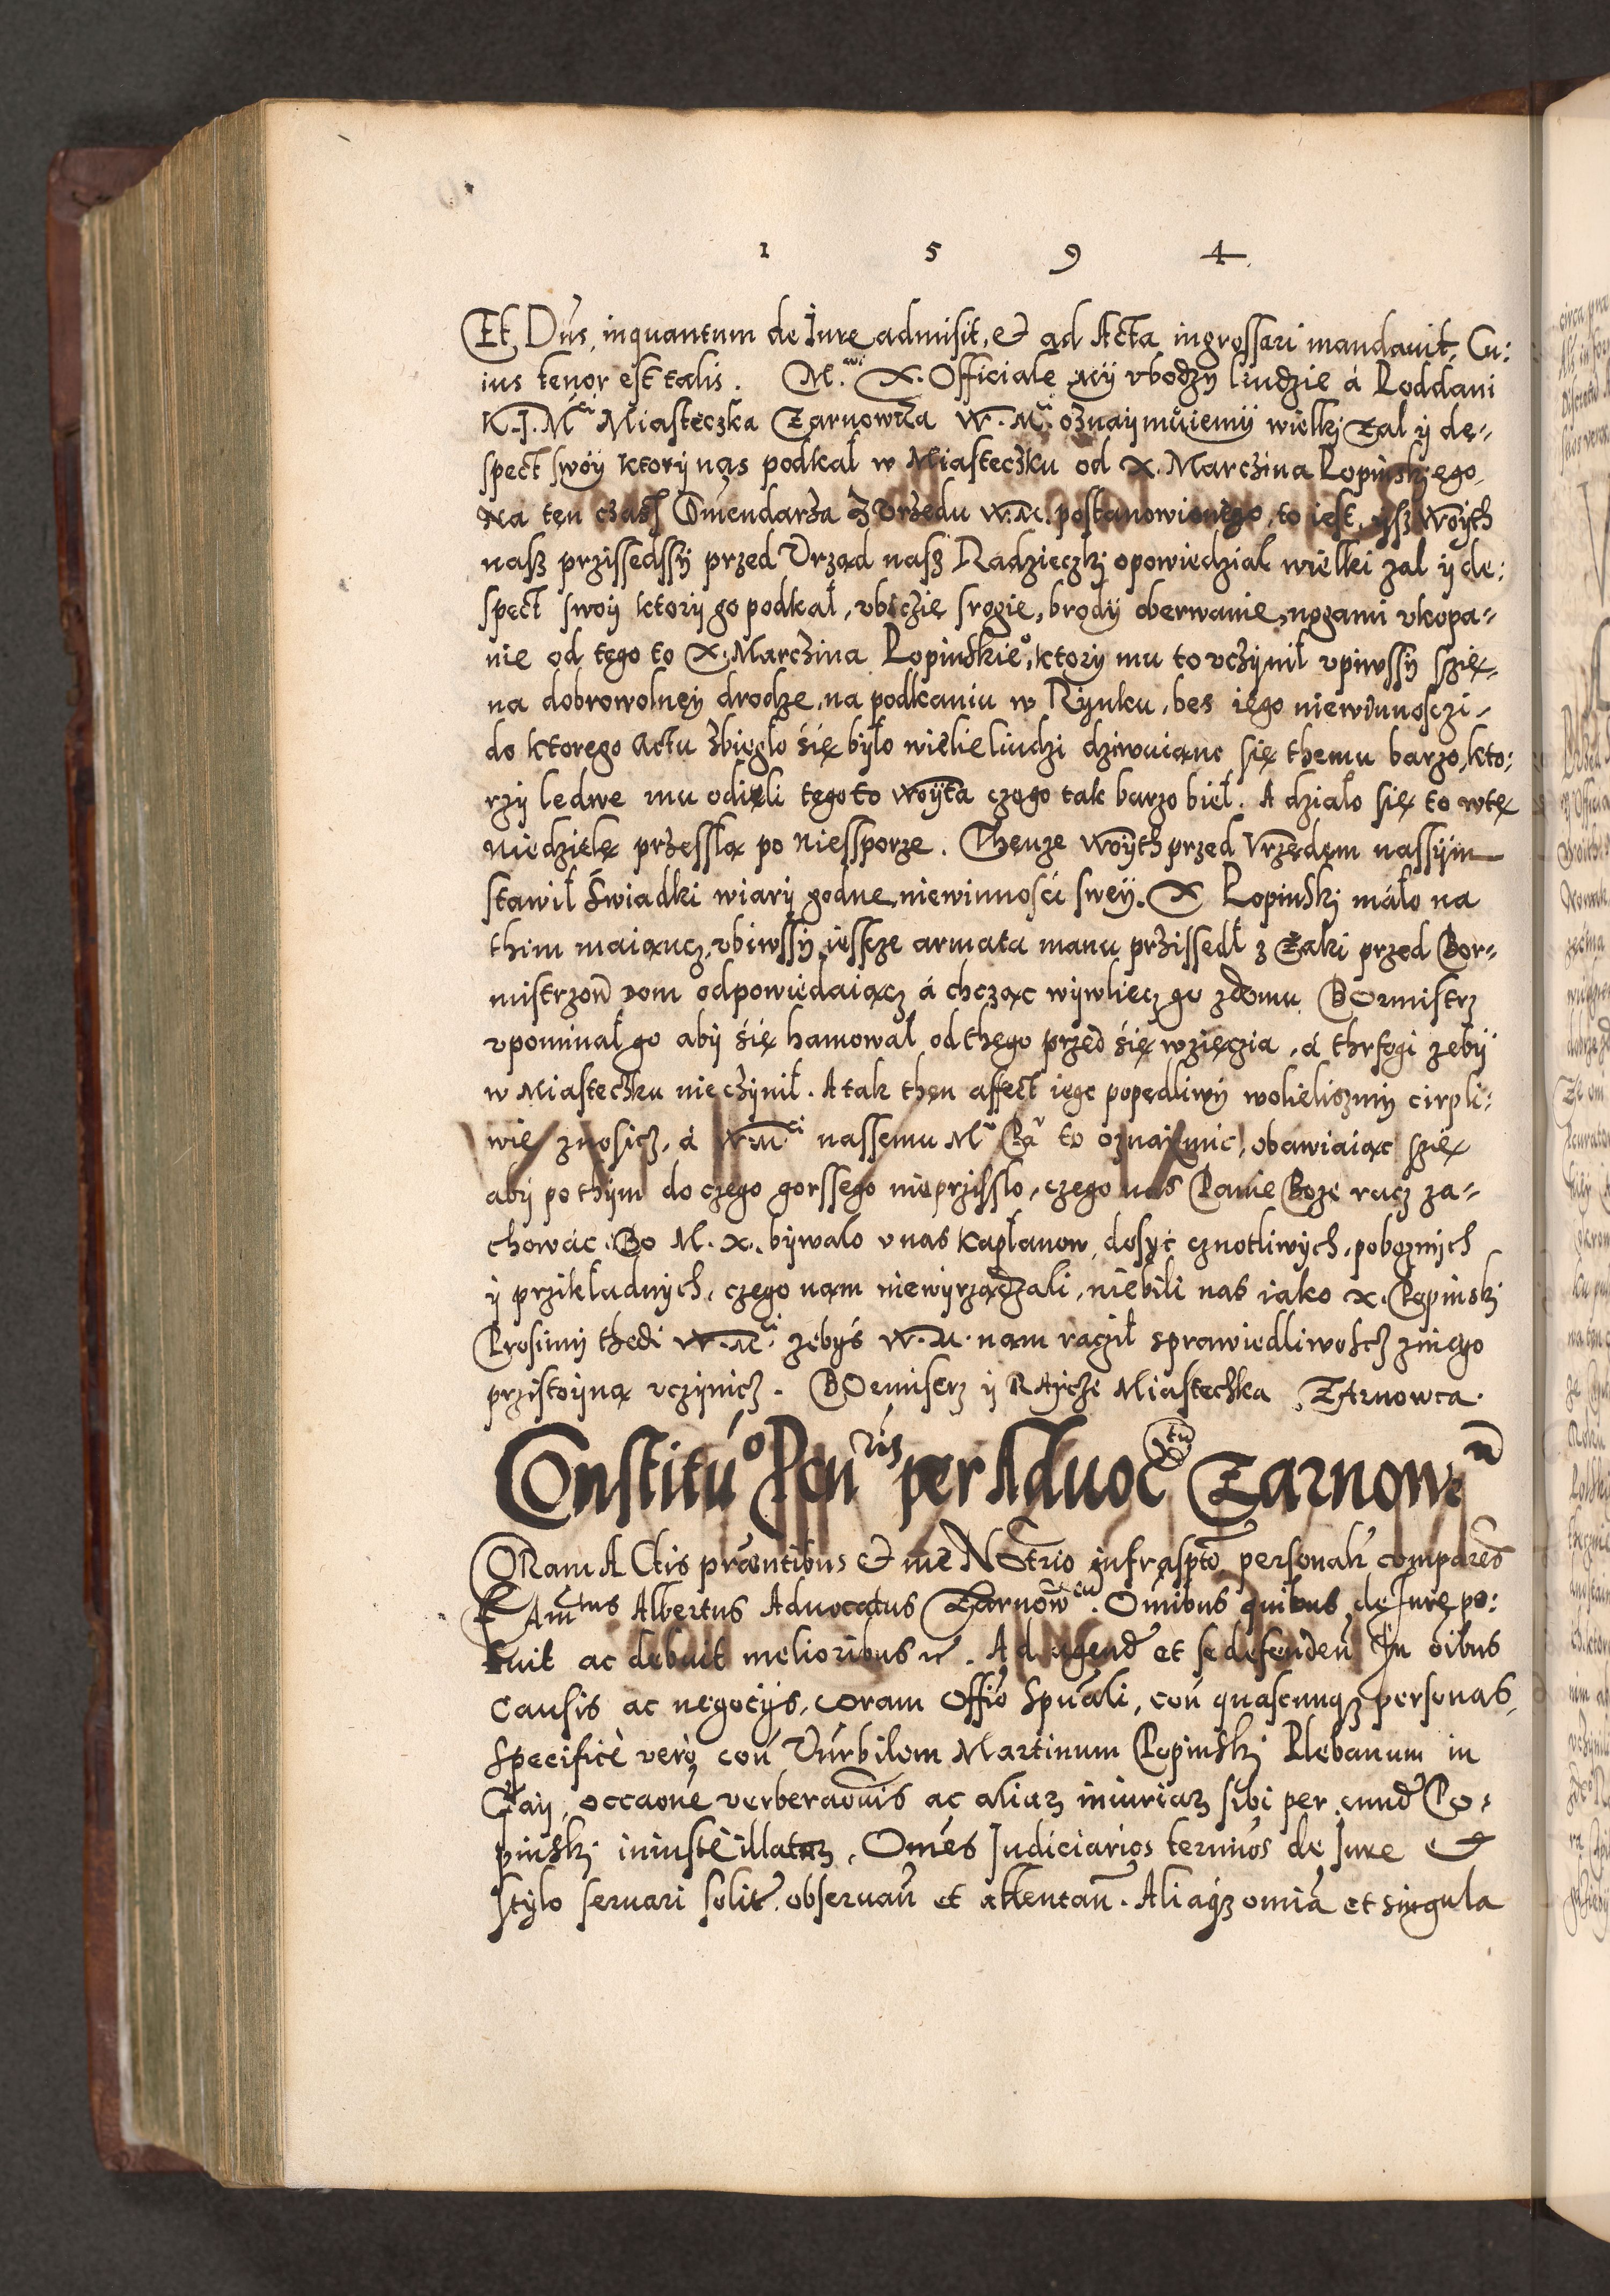 1 5 9 4
Et Dńs, inquantum de Iure admisit, et ad Acta ingrossari mandauit, Cu:
ius tenor est talis. M. X. Officiale my vbodzy liudzie á Poddani
K. J. Mci Miasteczka Żarnowca W. M. oznaijmuiemij wielkj Żal ij de-
spect swóij ktorij nąs podkał w Miasteczku od X. Marczina Popinskiego,
na ten czass Comendarza Z Vrzędu W. M. postanowionego, to iest, ysz Woyth
nasz przissedssij przed Vrząd nasz Radzieczkj opowiedział wielki żal ij de:
spect swoij ktorij go podkał, vbiczie srogie, brodij oberwanie, nogami vkopa-
nie od tego to X. Marczina Popinskieo, ktorij mu to vczijnił vpiwssij szię-
na dobrowolneij drodze, na podkaniu w Rijnku, bes iego niewinnosczi-
do ktorego Actu zbiegło się było wielie liudzi dziwuiąnc się themu barzo, kto:
rzij ledwe mu odięli tego to Woijta czego tak barzo bieł. A działo się to w tę
Niedzielę przesslą po Niessporze. Thenze Woijth przed Vrzędem nassijm
stawił Świadki wiarij godne, niewinnosći sweij. X Popinskj máło na
thim maiąncz, vbiwssij, iescze armata manu przissedł z Żaki przed Bor-
mistrzow dom odpowiedaiącz á chcząc wijwliecz go z domu. BOrmistrz
vpominał go abij się hamował od thego przed się wzięczia, á thrfogi zebij
w Miasteczku nie czijnił. A tak then affect iego popędliwij wolielismij cirpli:
wie znosicz, á W. Mci nassemu M. Pa. to oznaijmic, obawiaiąc szię
abij po thijm do czego gorssego nie przisslo, czego nas Panie Boże racz za-
chowác. Bo M. X. bijwało v nas Kapłanow, dosyć cznotliwijch, pobożnijch
ij przikładnijch, czego nam niewijrządzali, niebili nas iako X. Popinskj
Prosimij thedi W. Mci. zebijś W. M. nam racził sprawiedliwoscz z niego
przistoijną vczijnicz. BOrmistrz ij RAijcze Miasteczka ŻArnowca.
Constitúo Pcurús per Aduoctu Żarnown
CORam ACtis præntibus et me NOtrio infraspto personalr comparens
FAmtus Albertus Aduocatus Żarnowień. Omibus quibus de Iure po:
tuit ac debuit melioribus. Ad agend et se defenden In oibus
Causis ac negocijs, coram Offió Spuali, con quascunqz personas,
Specificè verò con Vúrbilem Martinum Popinskj Plebanum in
Gaij, occaone verberaonis ac aliaz iniuriaz sibi per eund Po-
pinskj iniustè illataz, Omes Iudiciarios terminos de Iure et
stylo seruari solit. obseruan et attentan. Aliaqz omia et singula